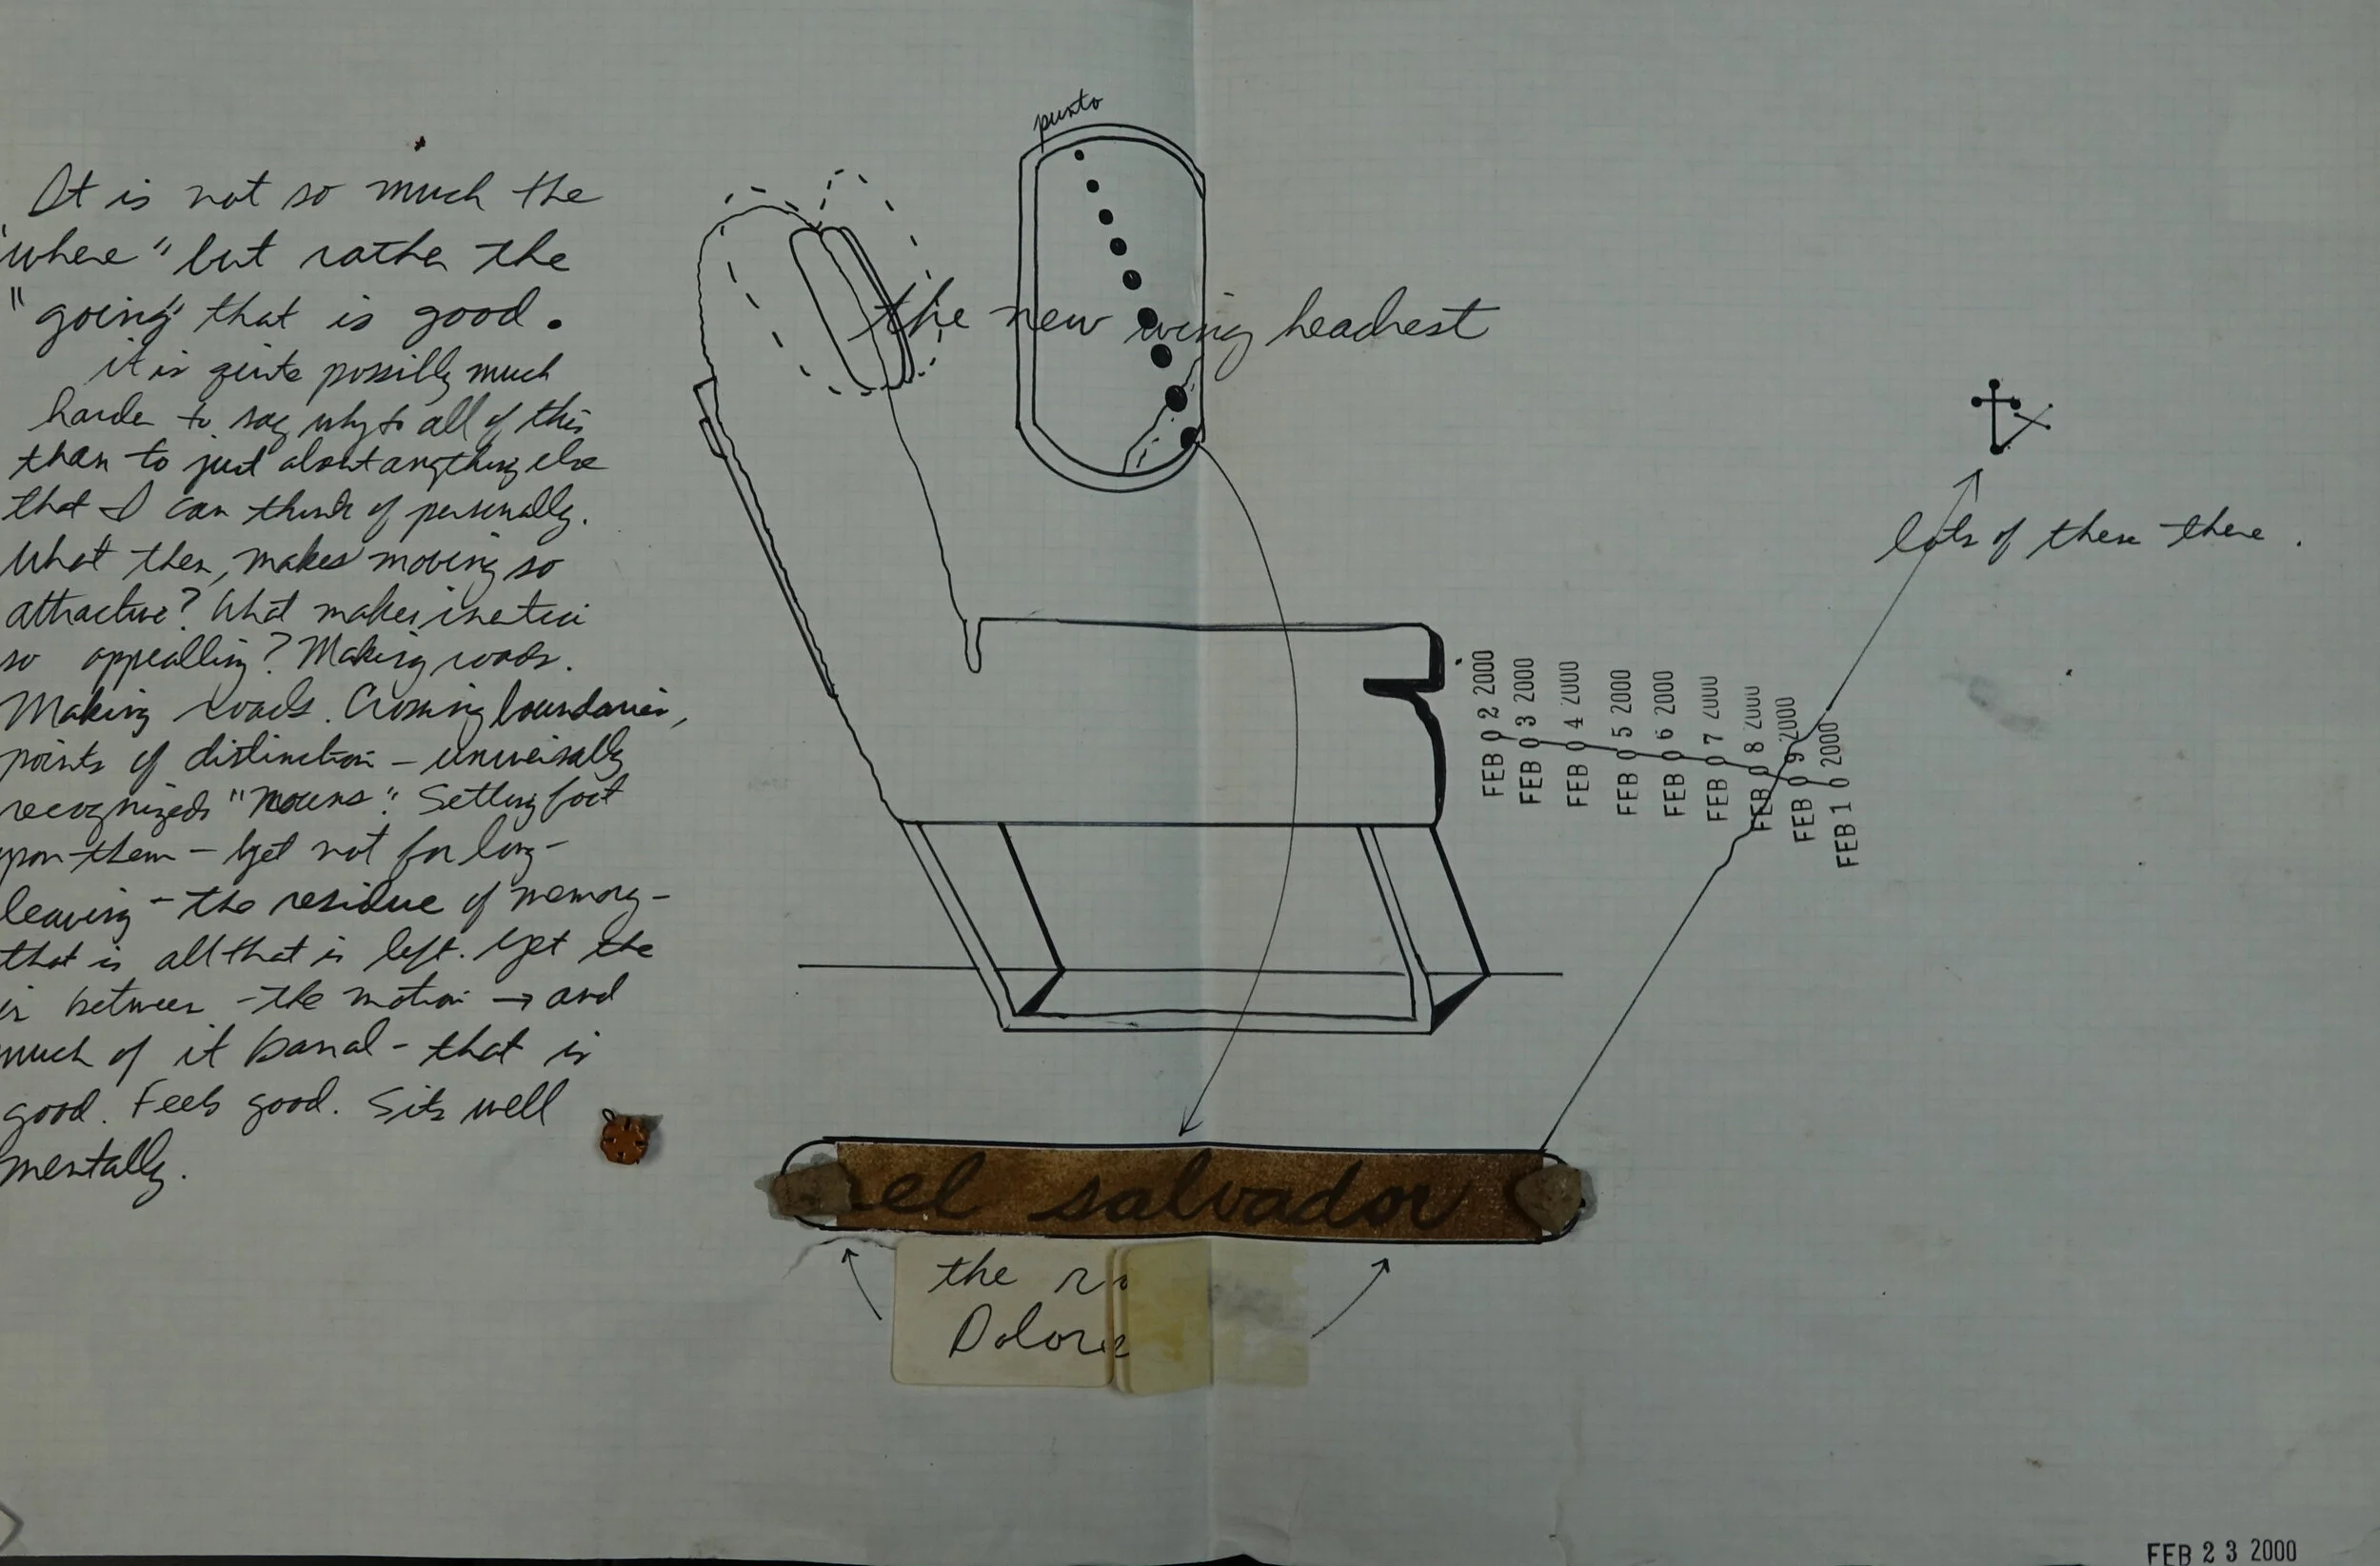 It is not so much the
"where" but rather the
"going" that is good.
it is quite possibly much
harder to say why to all of this
than to just about anything else
that I can think of personally.
What then, makes moving so
attractive? What makes inertia
so appealling? Making roads.
Making roads. Crossing boundaries,
points of distinction - universally
recognized "nouns". Setting foot
upon them - yet not for long -
leaving - the residue of memory -
that is all that is left. Yet the
in between - the motion → and
much of it banal - that is
good. Feels good. Sits well
mentally.
punto
the new wing headrest
lots of them there.
FEB 0 2 2000
FEB 0 3 2000
FEB 0 4 2000
FEB 0 5 2000
FEB 0 6 2000
FEB 0 7 2000
FEB 0 8 2000
FEB 0 9 2000
FEB 1 0 2000
el salvador
the
Dolore
FEB 2 3 2000